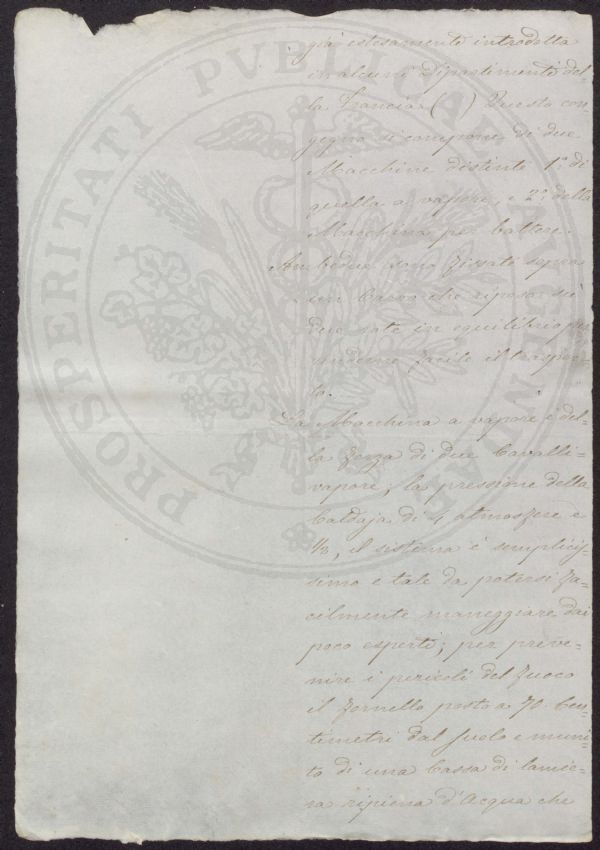 già estesamente introdotta
in alcuni dipartimenti del-
la Francia ( ) Questo con-
gegno si compone di due
Macchine distinte 1.° di
quella a vapore, e 2.° della
Macchina per battere.
Ambedue sono fissate sopra
un Carro che riposa su
due rote in equilibrio per
renderne facile il traspor-
to.
La Macchina a vapore è del-
la forza di due Cavalli-
vapore; la pressione della
Caldaja di 4 atmosfere e
1/3, il sistema è semplicis-
simo e tale da potersi fa-
cilmente maneggiare dai
poco esperti; per preve-
nire i pericoli del fuoco
il fornello posto a 70 Cen-
timetri dal suolo e muni-
to di una Cassa di lamie-
ra ripiena d'Acqua che
PROSPERITATI PUBLICAE AUGENDAE